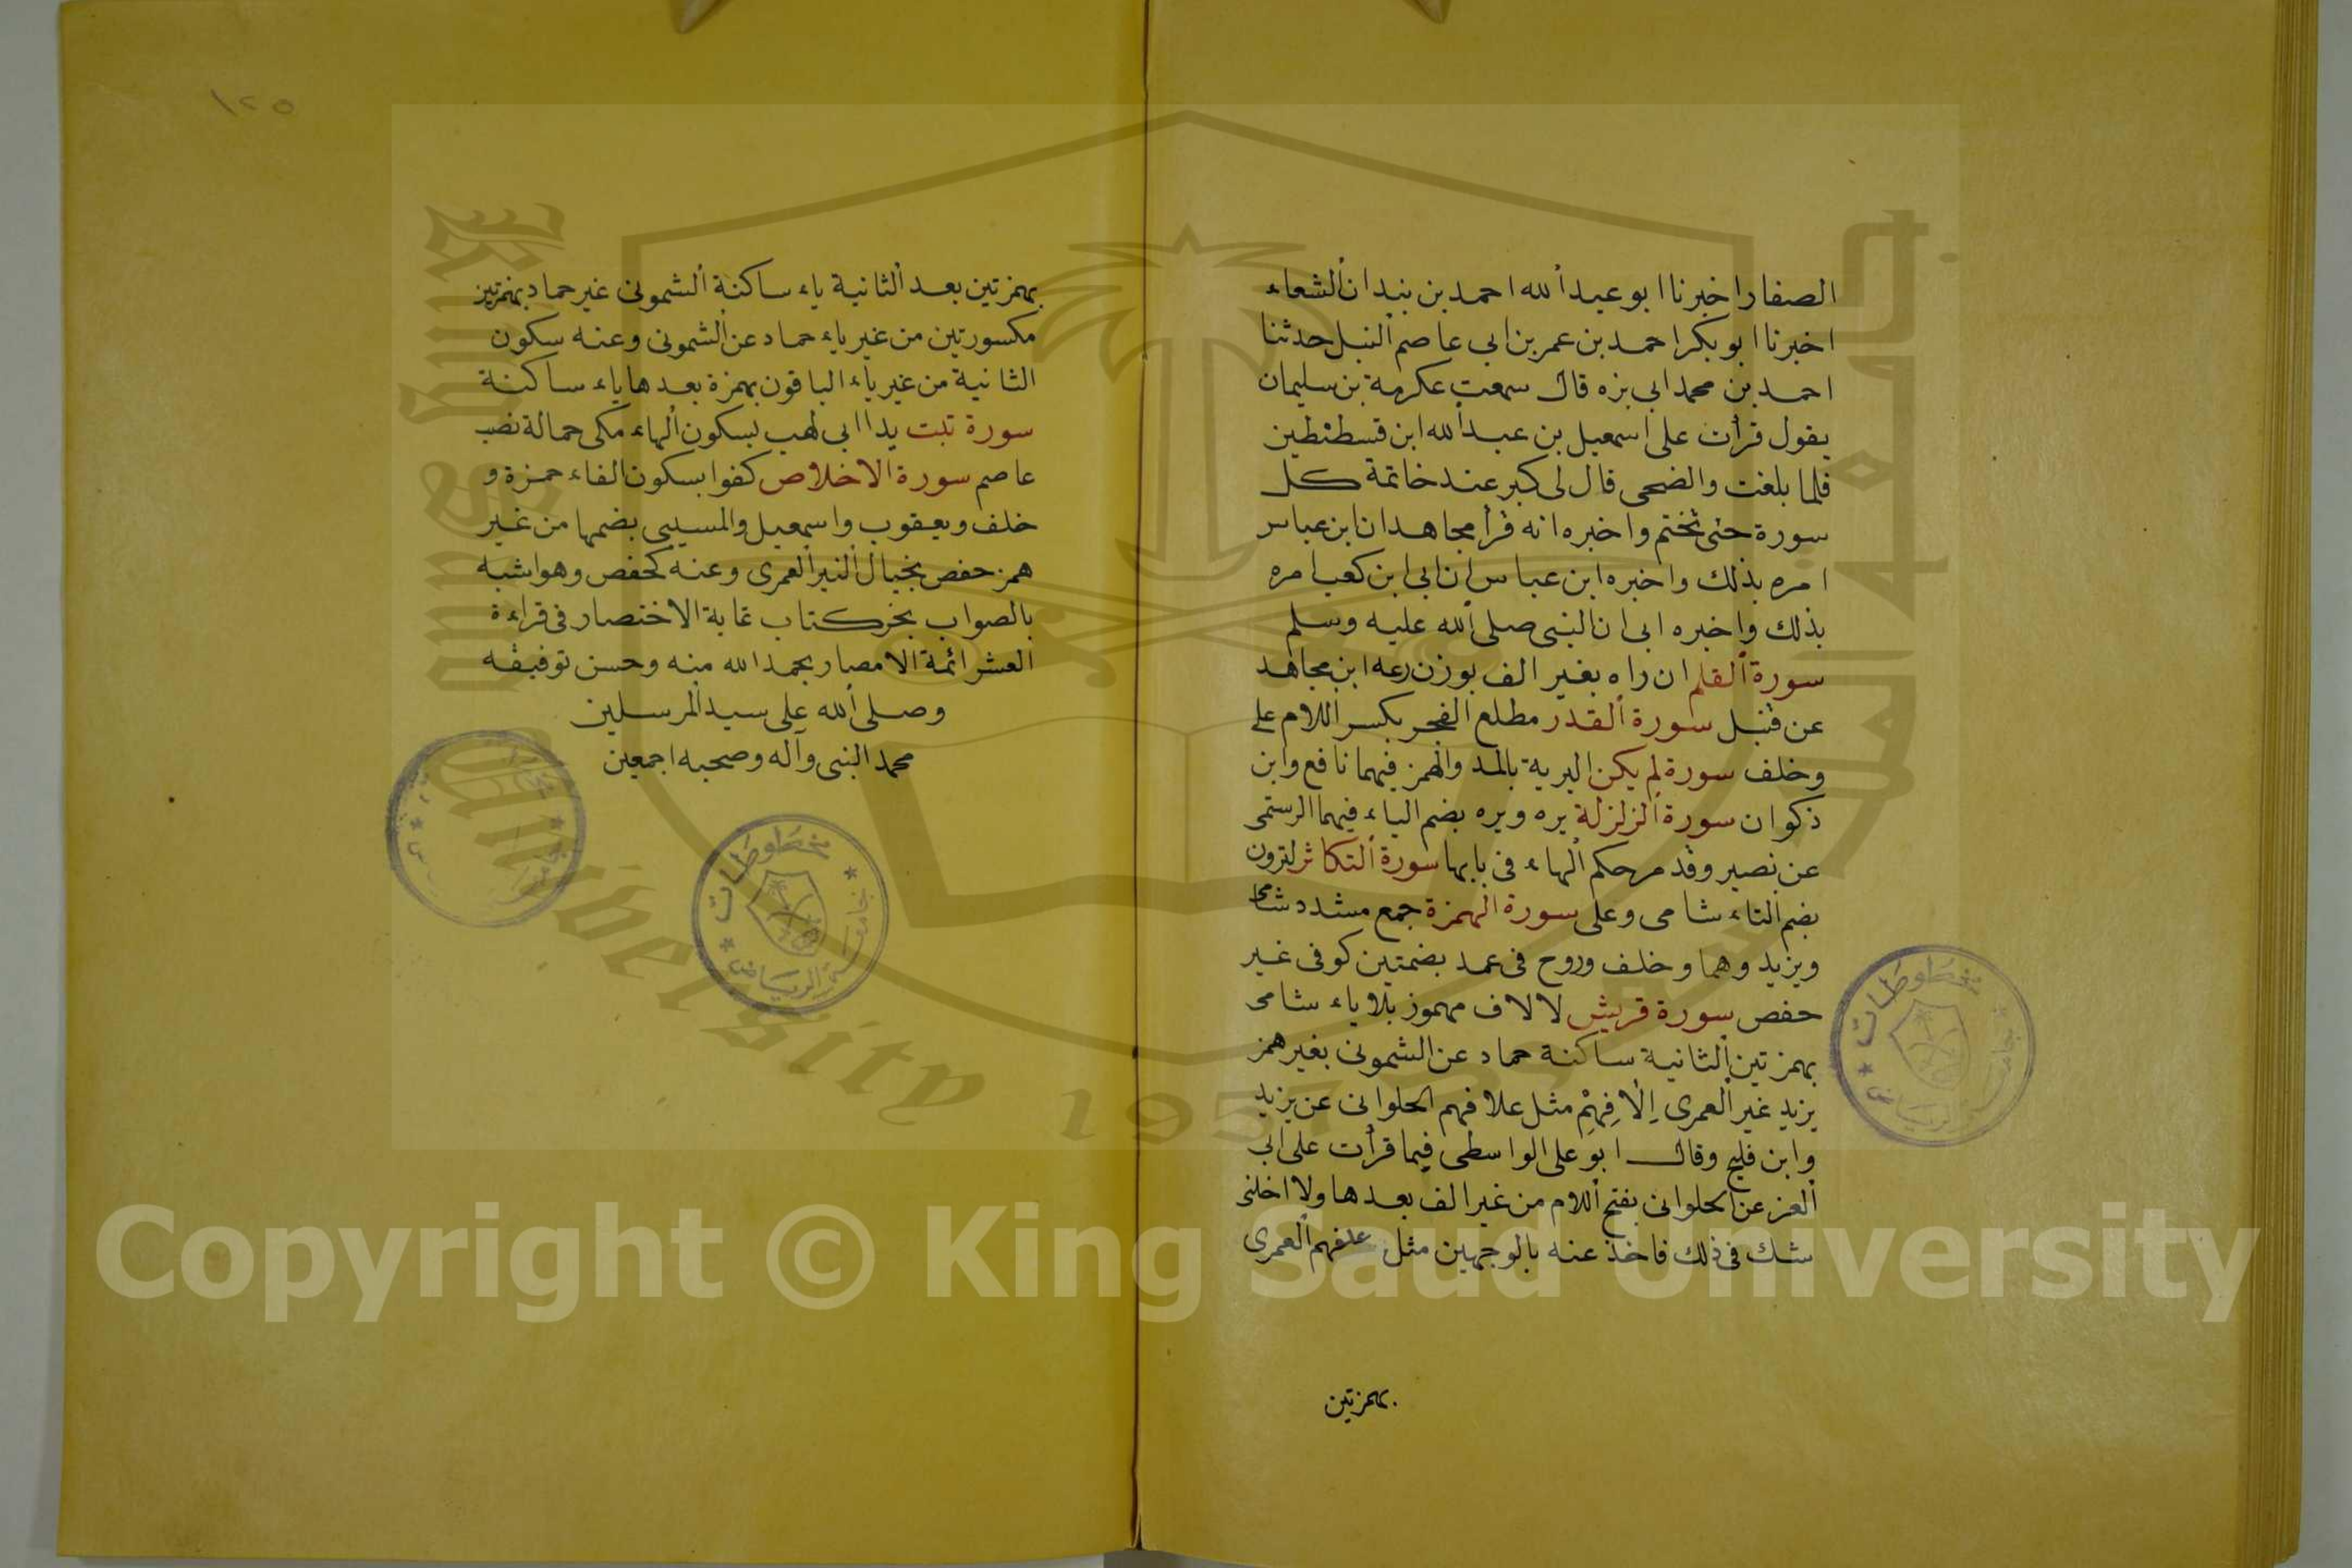 الصفار اخبرنا ابو عبد ألله احمد بن بندان ألشعاء
اخبرنا ابو بكر احمد بن عمر بن ابي عاصم ألنبل حدثنا
احمد بن محمد ابي بزه قال سمعت عكرمة بن سليمان
يقول قرأت على اسمعيل بن عبد ألله ابن قسطنطين
فلما بلغت والضحى قال لى كبر عند خاتمة كل
سورة حتى تختم واخبره انه قرأ مجاهد ان ابن عباس
امره بذلك واخبره ابن عباس ان ابى ابن كعب امره
بذلك واخبره ابى ان النبى صلى ألله عليه وسلم
سورة ألقلم ان راه بغير الف بوزن رعه ابن مجاهد
عن قنبل سورة ألقدر مطلع الفجر بكسر اللام على
وخلف سورة لم يكن البرية بالمد والهمز فيهما نافع وابن
ذكوان سورة ألزلزلة يره ويره بضم الياء فيهما الرستمى
عن نصير وقد مر حكم ألهاء فى بابها سورة ألتكاثر لترون
بضم التاء شامى وعلى سورة الهمزة جمع مشدد شامى
ويزيد وهما وخلف وروح فى عمد بضمتين كوفى غير
حفص سورة قريش لالاف مهموز بلا ياء شامى
بهمزتين ألثانية ساكنة حماد عن الشمونى بغير همز
يزيد غير ألعمرى إِلَافِهِمْ مثل علافهم الحلوانى عن يزيد
وابن فليح وقال ابو على الواسطى فيما قرأت على ابى
ألعز عن الحلوانى بفتح أللام من غير الف بعدها ولا اخلنى
شك فى ذلك فاخذ عنه بالوجهين مثل علفهم ألعمرى
بهمزتين
١٢٥
بهمزتين بعد ألثانية ياء ساكنة ألشمونى غير حماد بهمزتين
مكسورتين من غير ياء حماد عن ألشمونى وعنه سكون
الثانية من غير ياء الباقون بهمزة بعدها ياء ساكنة
سورة تبت يدا ابى لهب بسكون ألهاء مكى حمالة نصب
عاصم سورة الاخلاص كفوا بسكون الفاء حمزة و
خلف ويعقوب واسمعيل والمسيبى بضمها من غير
همز حفص بخيال ألنبر ألعمرى وعنه كحفص وهو اشبه
بالصواب نجز كتاب غاية الاختصار فى قراءة
العشر ائمة الامصار بحمد الله منه وحسن توفيقه
وصلى ألله على سيد المرسلين
محمد النبى وآله وصحبه اجمعين
مخطوطات
جامعة الرياض
Copyright © King Saud University
University 1957